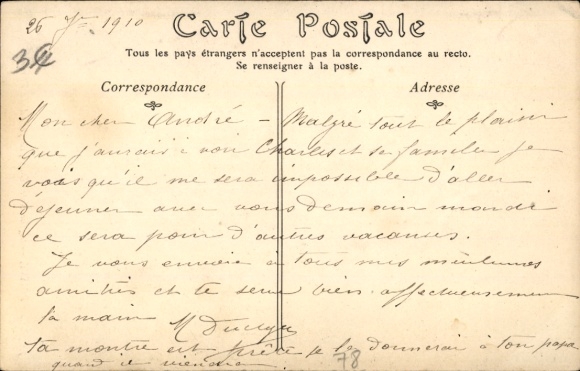 26 1910
Carte Postale
Tous les pays étrangers n'acceptent pas la correspondance au recto.
Se renseigner à la poste.
34
Correspondance
Adresse
Mon cher André – Malgré tout le plaisir
que j'aurais à voir Charles et sa famille je
vois qu'il me sera impossible d'aller
déjeuner avec vous demain mardi
ce sera pour d'autres vacances.
Je vous envoie à tous mes meilleures
amitiés et te serre bien affectueusement
la main
M
ta montre est prête je la donnerai à ton papa
quand il viendra
78